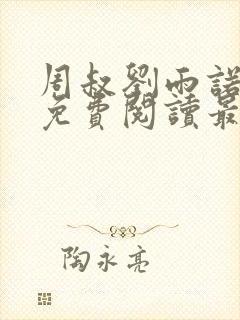 周叔劉雨諾
免費閱讀最
陶永亮